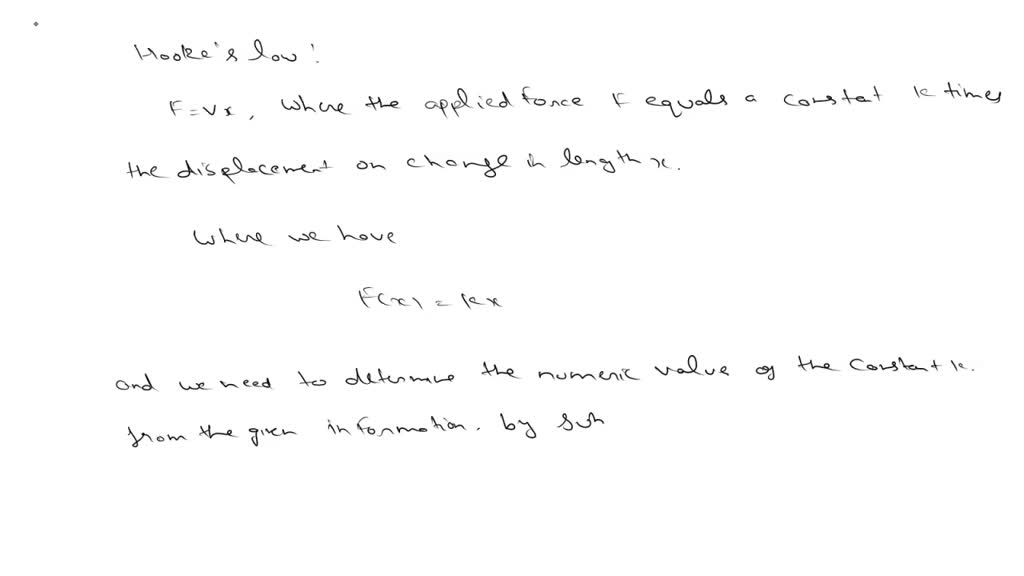 Hooke's low!
F = Vx, where the applied force F equals a constat k times
the displacement on change in length x.
where we have
F(x) = kx
and we need to determine the numeric value of the constant k.
from the given information. by sub